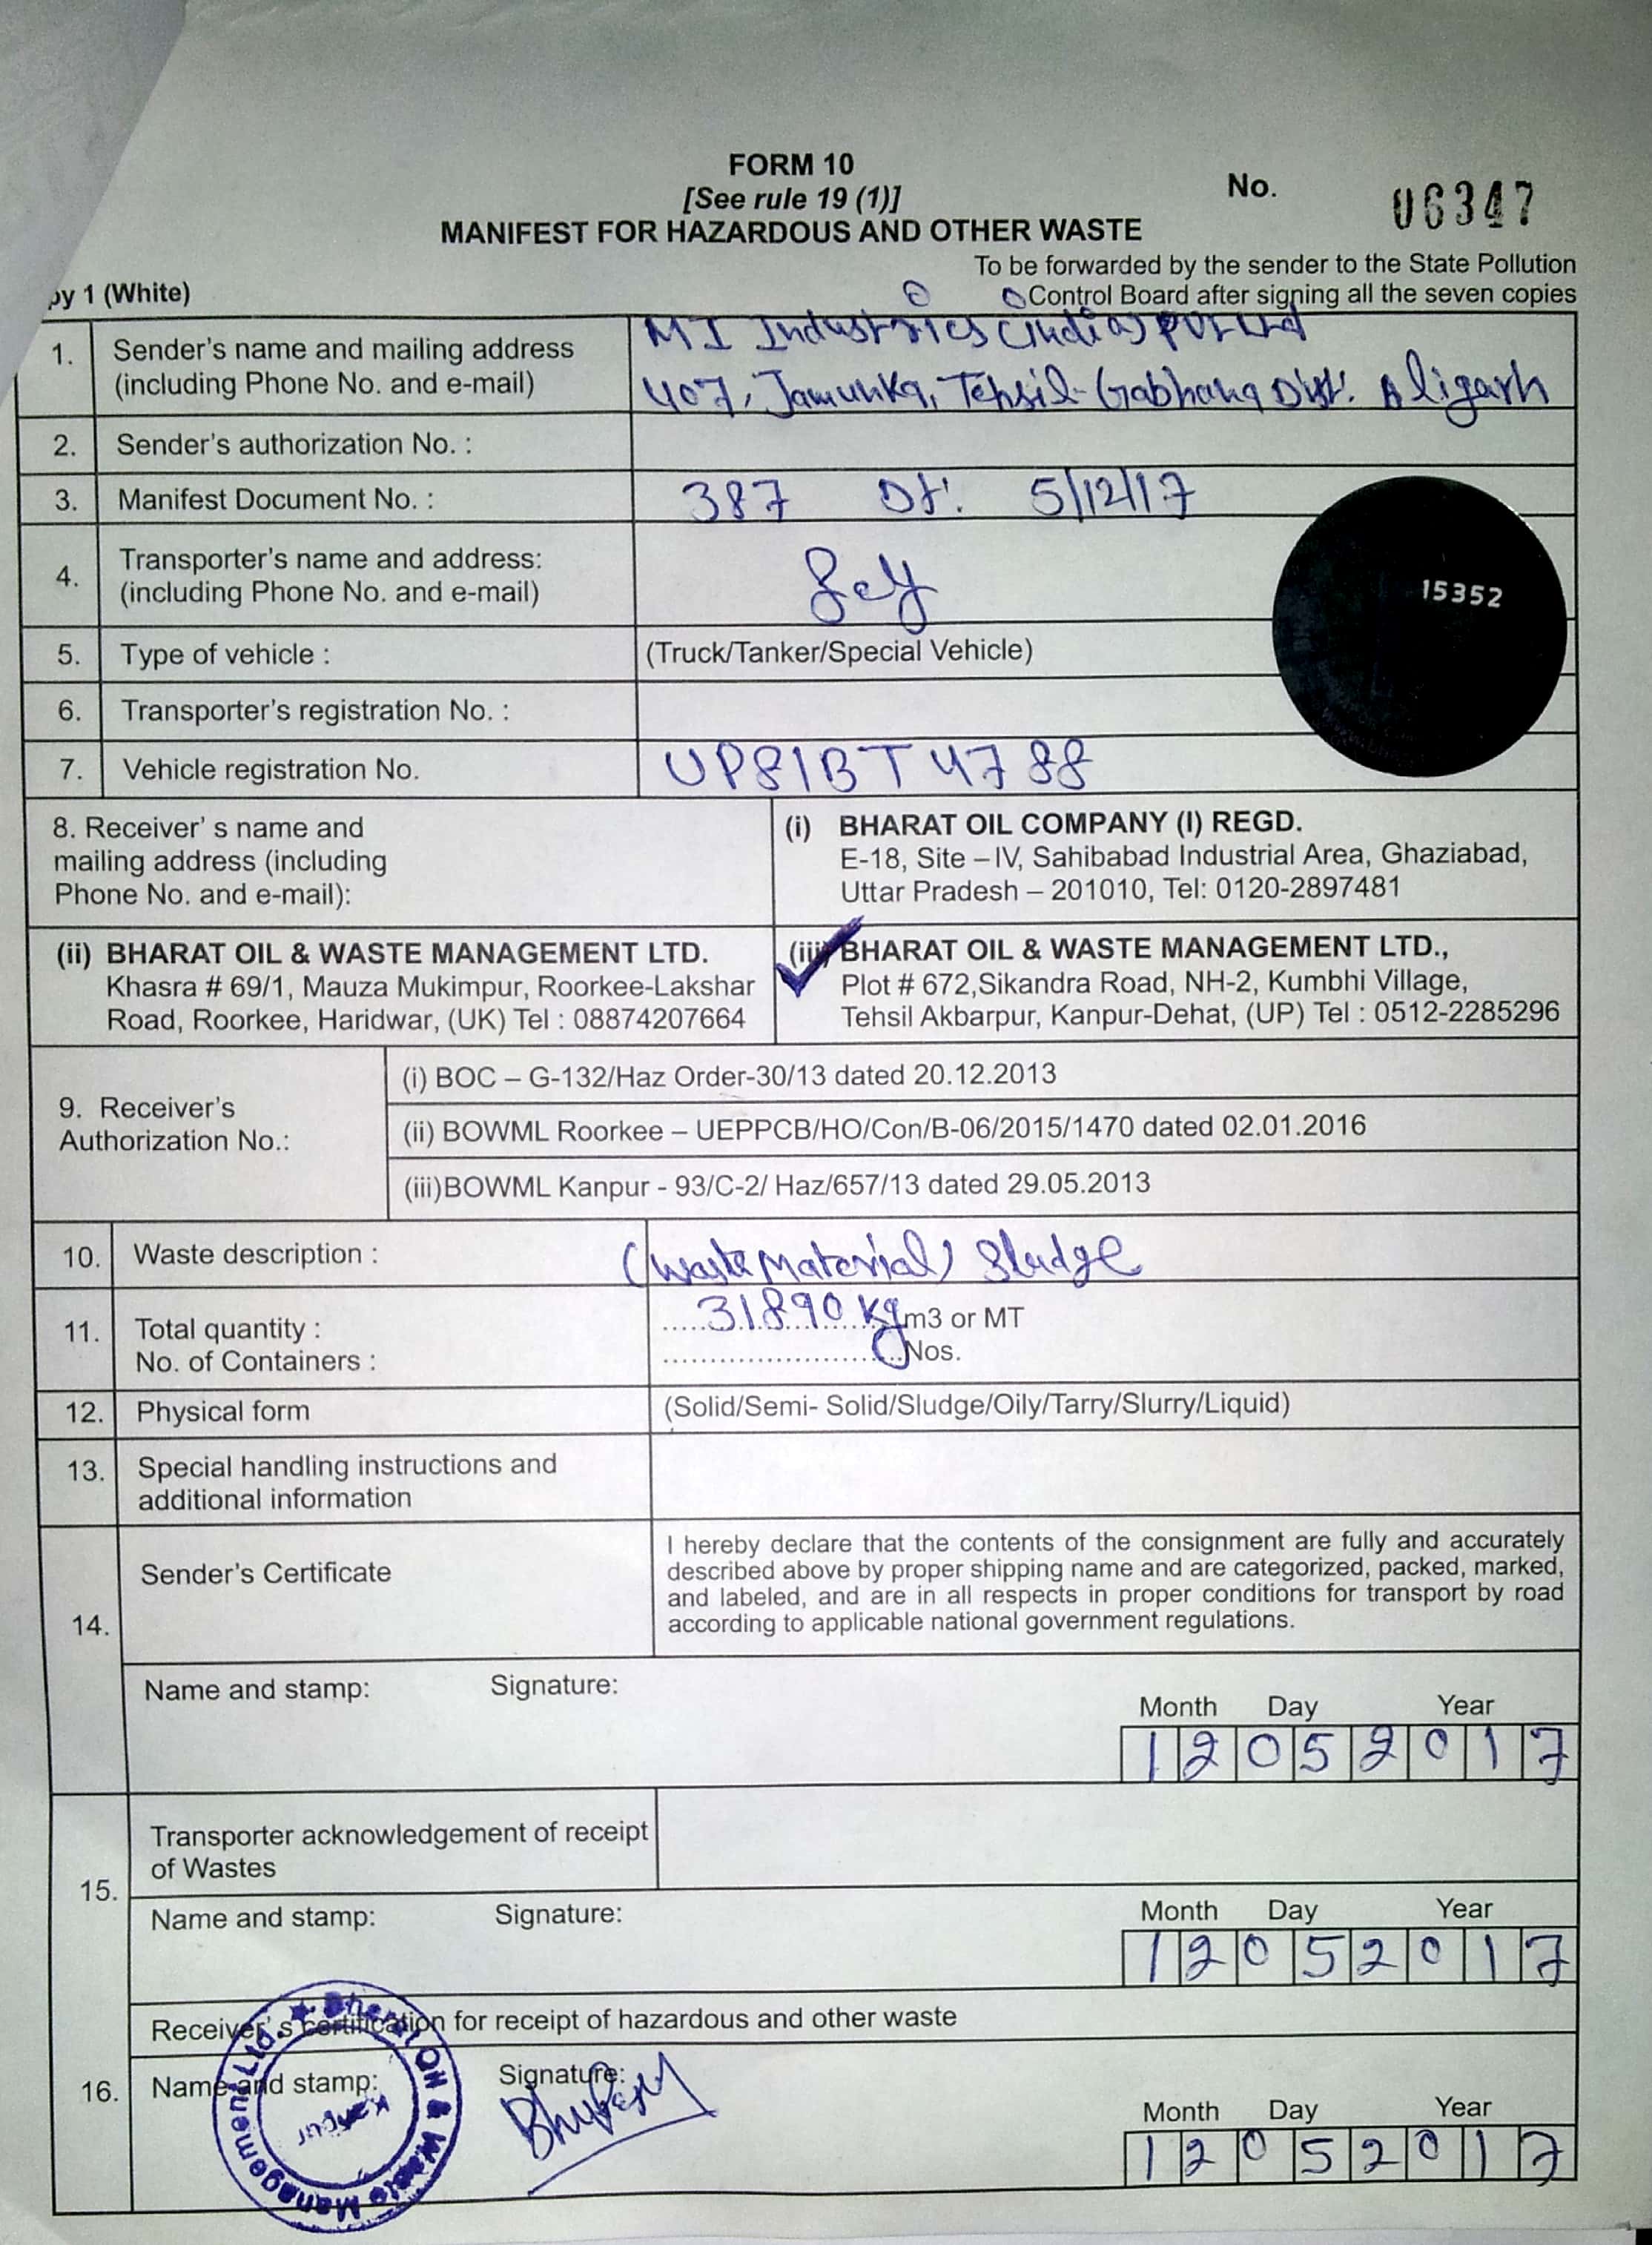 FORM 10
[See rule 19 (1)]
No. 06347
MANIFEST FOR HAZARDOUS AND OTHER WASTE
To be forwarded by the sender to the State Pollution
py 1 (White)
Control Board after signing all the seven copies
1. Sender's name and mailing address
(including Phone No. and e-mail)
MI Industries (India) Pvt Ltd
407, Jamunka, Tehsil-Gabhana Dist. Aligarh
2. Sender's authorization No. :
3. Manifest Document No. : 387 Dt. 5/12/17
4. Transporter's name and address:
(including Phone No. and e-mail)
Self
15352
5. Type of vehicle : (Truck/Tanker/Special Vehicle)
6. Transporter's registration No. :
7. Vehicle registration No. UP81BT4788
8. Receiver' s name and
mailing address (including
Phone No. and e-mail):
(i) BHARAT OIL COMPANY (I) REGD.
E-18, Site – IV, Sahibabad Industrial Area, Ghaziabad,
Uttar Pradesh – 201010, Tel: 0120-2897481
(ii) BHARAT OIL & WASTE MANAGEMENT LTD.
Khasra # 69/1, Mauza Mukimpur, Roorkee-Lakshar
Road, Roorkee, Haridwar, (UK) Tel : 08874207664
(iii) BHARAT OIL & WASTE MANAGEMENT LTD.,
Plot # 672,Sikandra Road, NH-2, Kumbhi Village,
Tehsil Akbarpur, Kanpur-Dehat, (UP) Tel : 0512-2285296
9. Receiver's
Authorization No.:
(i) BOC – G-132/Haz Order-30/13 dated 20.12.2013
(ii) BOWML Roorkee – UEPPCB/HO/Con/B-06/2015/1470 dated 02.01.2016
(iii)BOWML Kanpur - 93/C-2/ Haz/657/13 dated 29.05.2013
10. Waste description : (Waste Material) Sludge
11. Total quantity : 31890 Kg m3 or MT
No. of Containers : Nos.
12. Physical form (Solid/Semi- Solid/Sludge/Oily/Tarry/Slurry/Liquid)
13. Special handling instructions and
additional information
14. Sender's Certificate
I hereby declare that the contents of the consignment are fully and accurately
described above by proper shipping name and are categorized, packed, marked,
and labeled, and are in all respects in proper conditions for transport by road
according to applicable national government regulations.
Name and stamp: Signature:
Month Day Year
12052017
15. Transporter acknowledgement of receipt
of Wastes
Name and stamp: Signature:
Month Day Year
12052017
16. Receiver' s certification for receipt of hazardous and other waste
Name and stamp: Signature:
Month Day Year
12052017
Bharat Oil & Waste Management Ltd.
Kanpur